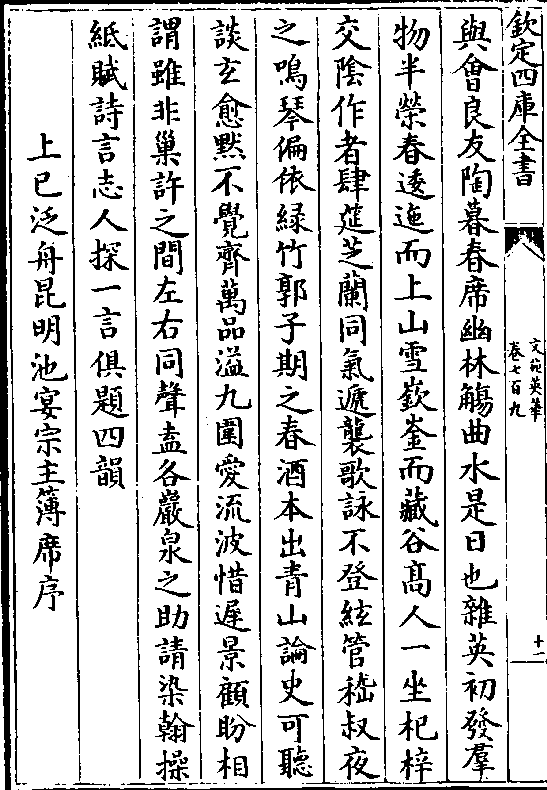 欽定四庫全書
文苑英華
卷七百九
十一
與會良友陶暮春席幽林觴曲水是日也雜英初發羣
物半榮春逶迤而上山雪嶔崟而藏谷髙人一坐杞梓
交陰作者肆筵芝蘭同氣遞襲歌詠不登絃管嵇叔夜
之鳴琴偏依緑竹郭子期之春酒本出青山論史可聽
談玄愈黙不覺齊萬品溢九圍愛流波惜遲景顧盼相
謂雖非巢許之間左右同聲盍各巖泉之助請染翰操
紙賦詩言志人探一言俱題四韻
上巳泛舟昆明池宴宗主簿席序